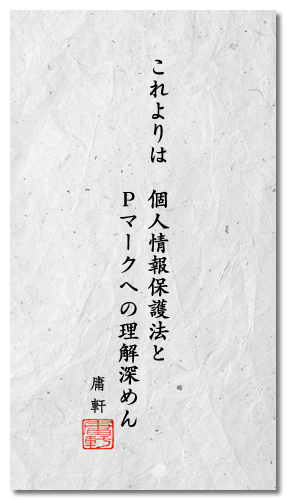 これよりは　個人情報保護法と
Pマークへの理解深めん
庸軒